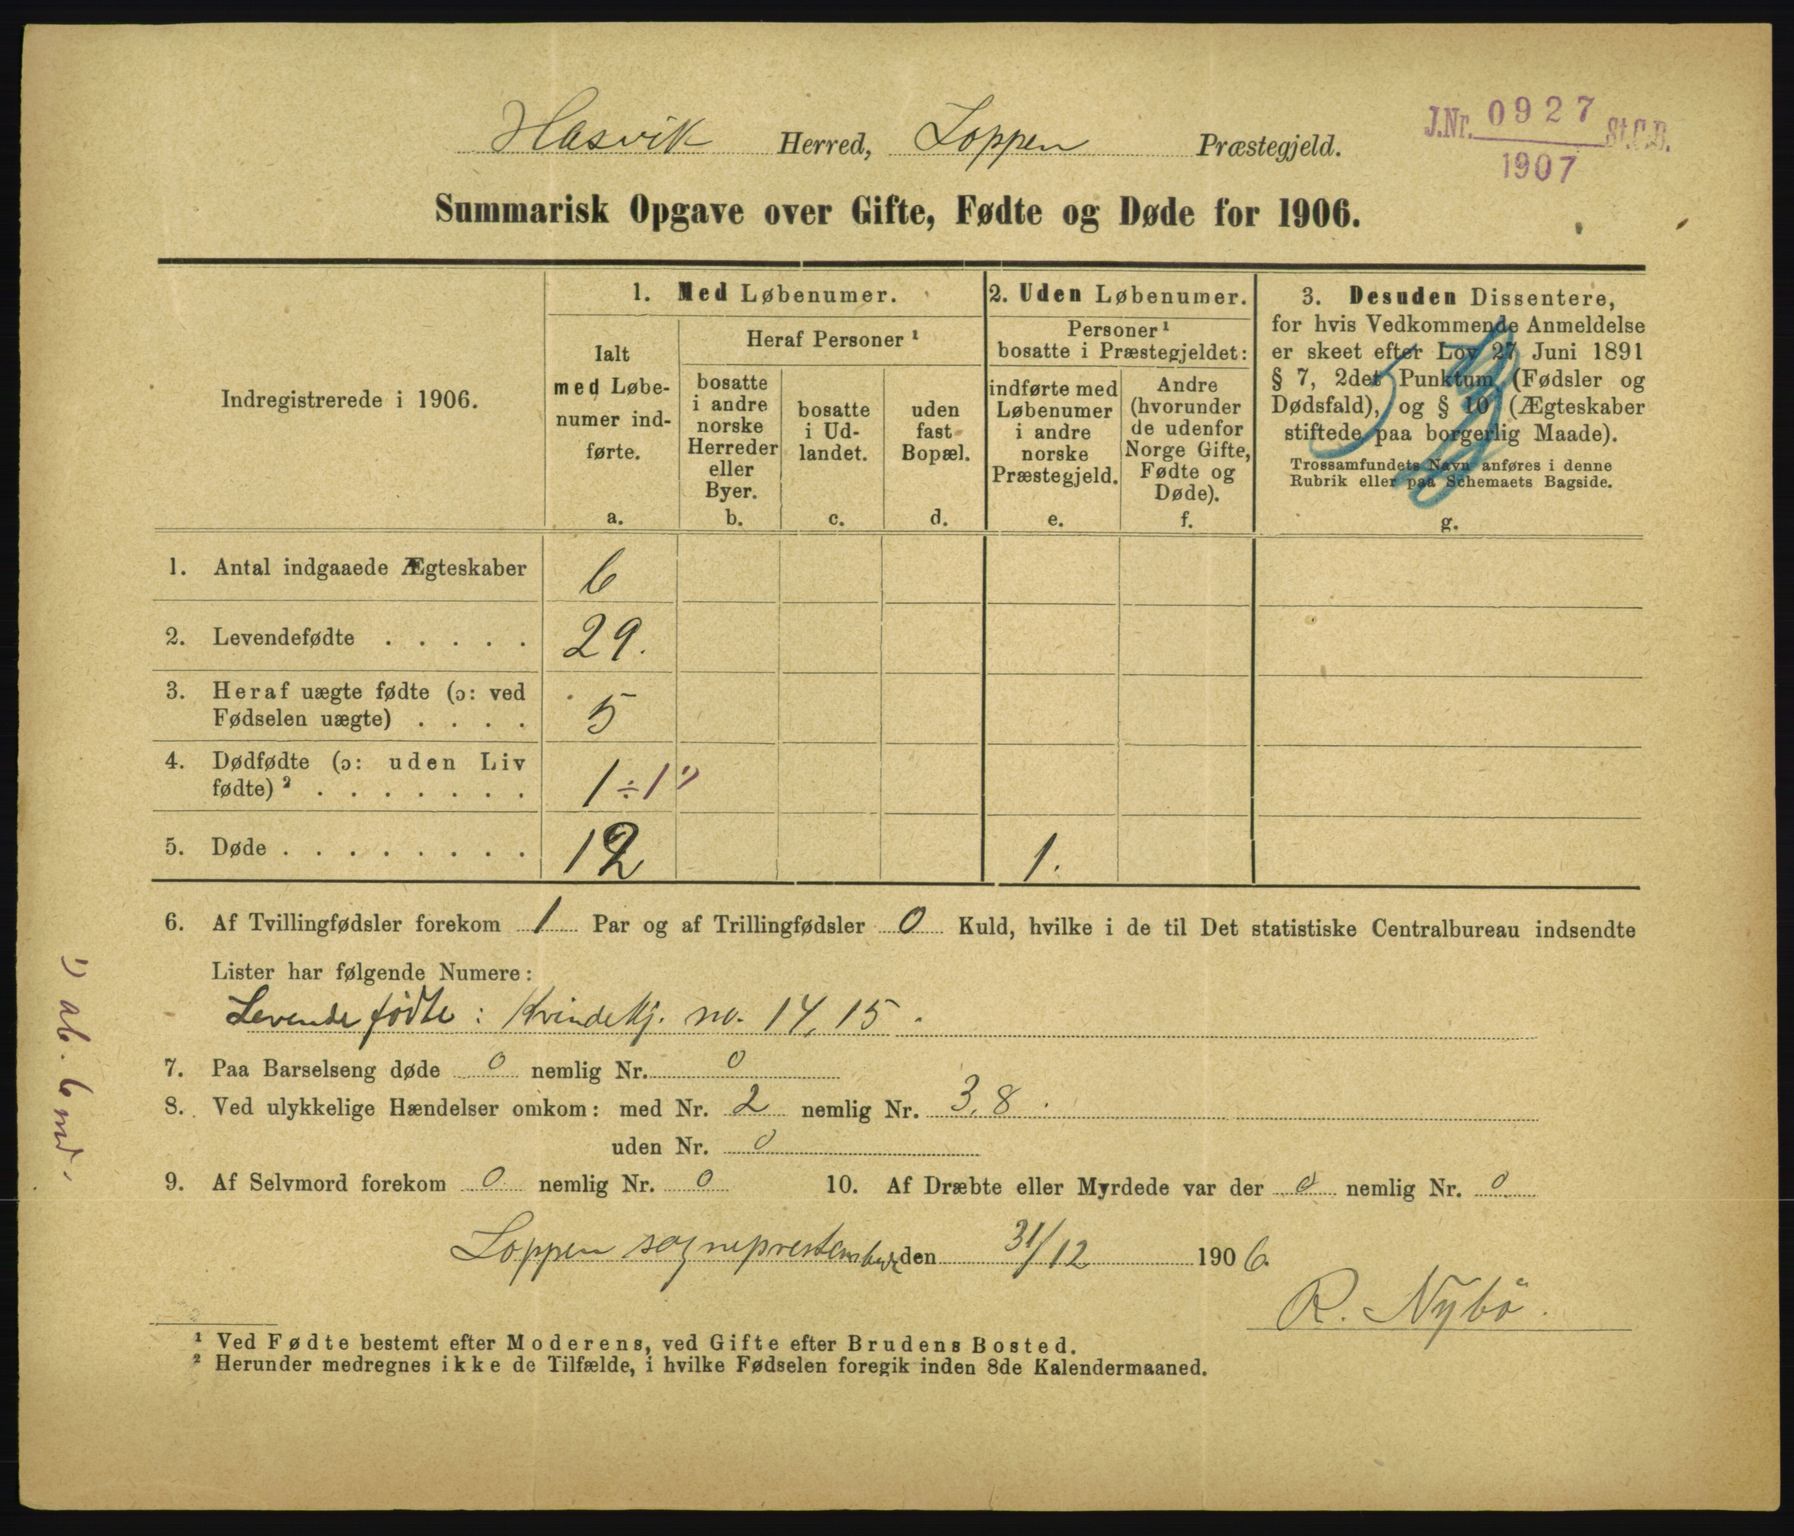 Hasvik Herred, Loppen Præstegjeld.
J.Nr. 0927 St.C.B.
1907
Summarisk Opgave over Gifte, Fødte og Døde for 1906.
Indregistrerede i 1906.
1. Med Løbenumer.
Ialt
med Løbe-
numer ind-
førte.
a.
Heraf Personer ¹
bosatte
i andre
norske
Herreder
eller
Byer.
b.
bosatte
i Ud-
landet.
c.
uden
fast
Bopæl.
d.
2. Uden Løbenumer.
Personer ¹
bosatte i Præstegjeldet:
indførte med
Løbenumer
i andre
norske
Præstegjeld.
e.
Andre
(hvorunder
de udenfor
Norge Gifte,
Fødte og
Døde).
f.
3. Desuden Dissentere,
for hvis Vedkommende Anmeldelse
er skeet efter Lov 27 Juni 1891
§ 7, 2det Punktum (Fødsler og
Dødsfald), og § 10 (Ægteskaber
stiftede paa borgerlig Maade).
Trossamfundets Navn anføres i denne
Rubrik eller paa Schemaets Bagside.
g.
1. Antal indgaaede Ægteskaber 6
2. Levendefødte . . . . . 29.
3. Heraf uægte fødte (ɔ: ved
Fødselen uægte) . . . . 5
4. Dødfødte (ɔ: uden Liv
fødte) ² . . . . . . . 1 ÷ 1 ¹)
5. Døde . . . . . . . . 12 1.
6. Af Tvillingfødsler forekom 1 Par og af Trillingfødsler 0 Kuld, hvilke i de til Det statistiske Centralbureau indsendte
Lister har følgende Numere:
Levende fødte: Kvindekj. no. 14, 15.
7. Paa Barselseng døde 0 nemlig Nr. 0
8. Ved ulykkelige Hændelser omkom: med Nr. 2 nemlig Nr. 3, 8.
uden Nr. 0
9. Af Selvmord forekom 0 nemlig Nr. 0 10. Af Dræbte eller Myrdede var der 0 nemlig Nr. 0
Loppen sogneprestembede den 31/12 1906.
R. Nybö.
¹ Ved Fødte bestemt efter Moderens, ved Gifte efter Brudens Bosted.
² Herunder medregnes ikke de Tilfælde, i hvilke Fødselen foregik inden 8de Kalendermaaned.
¹) ab. 6 md.